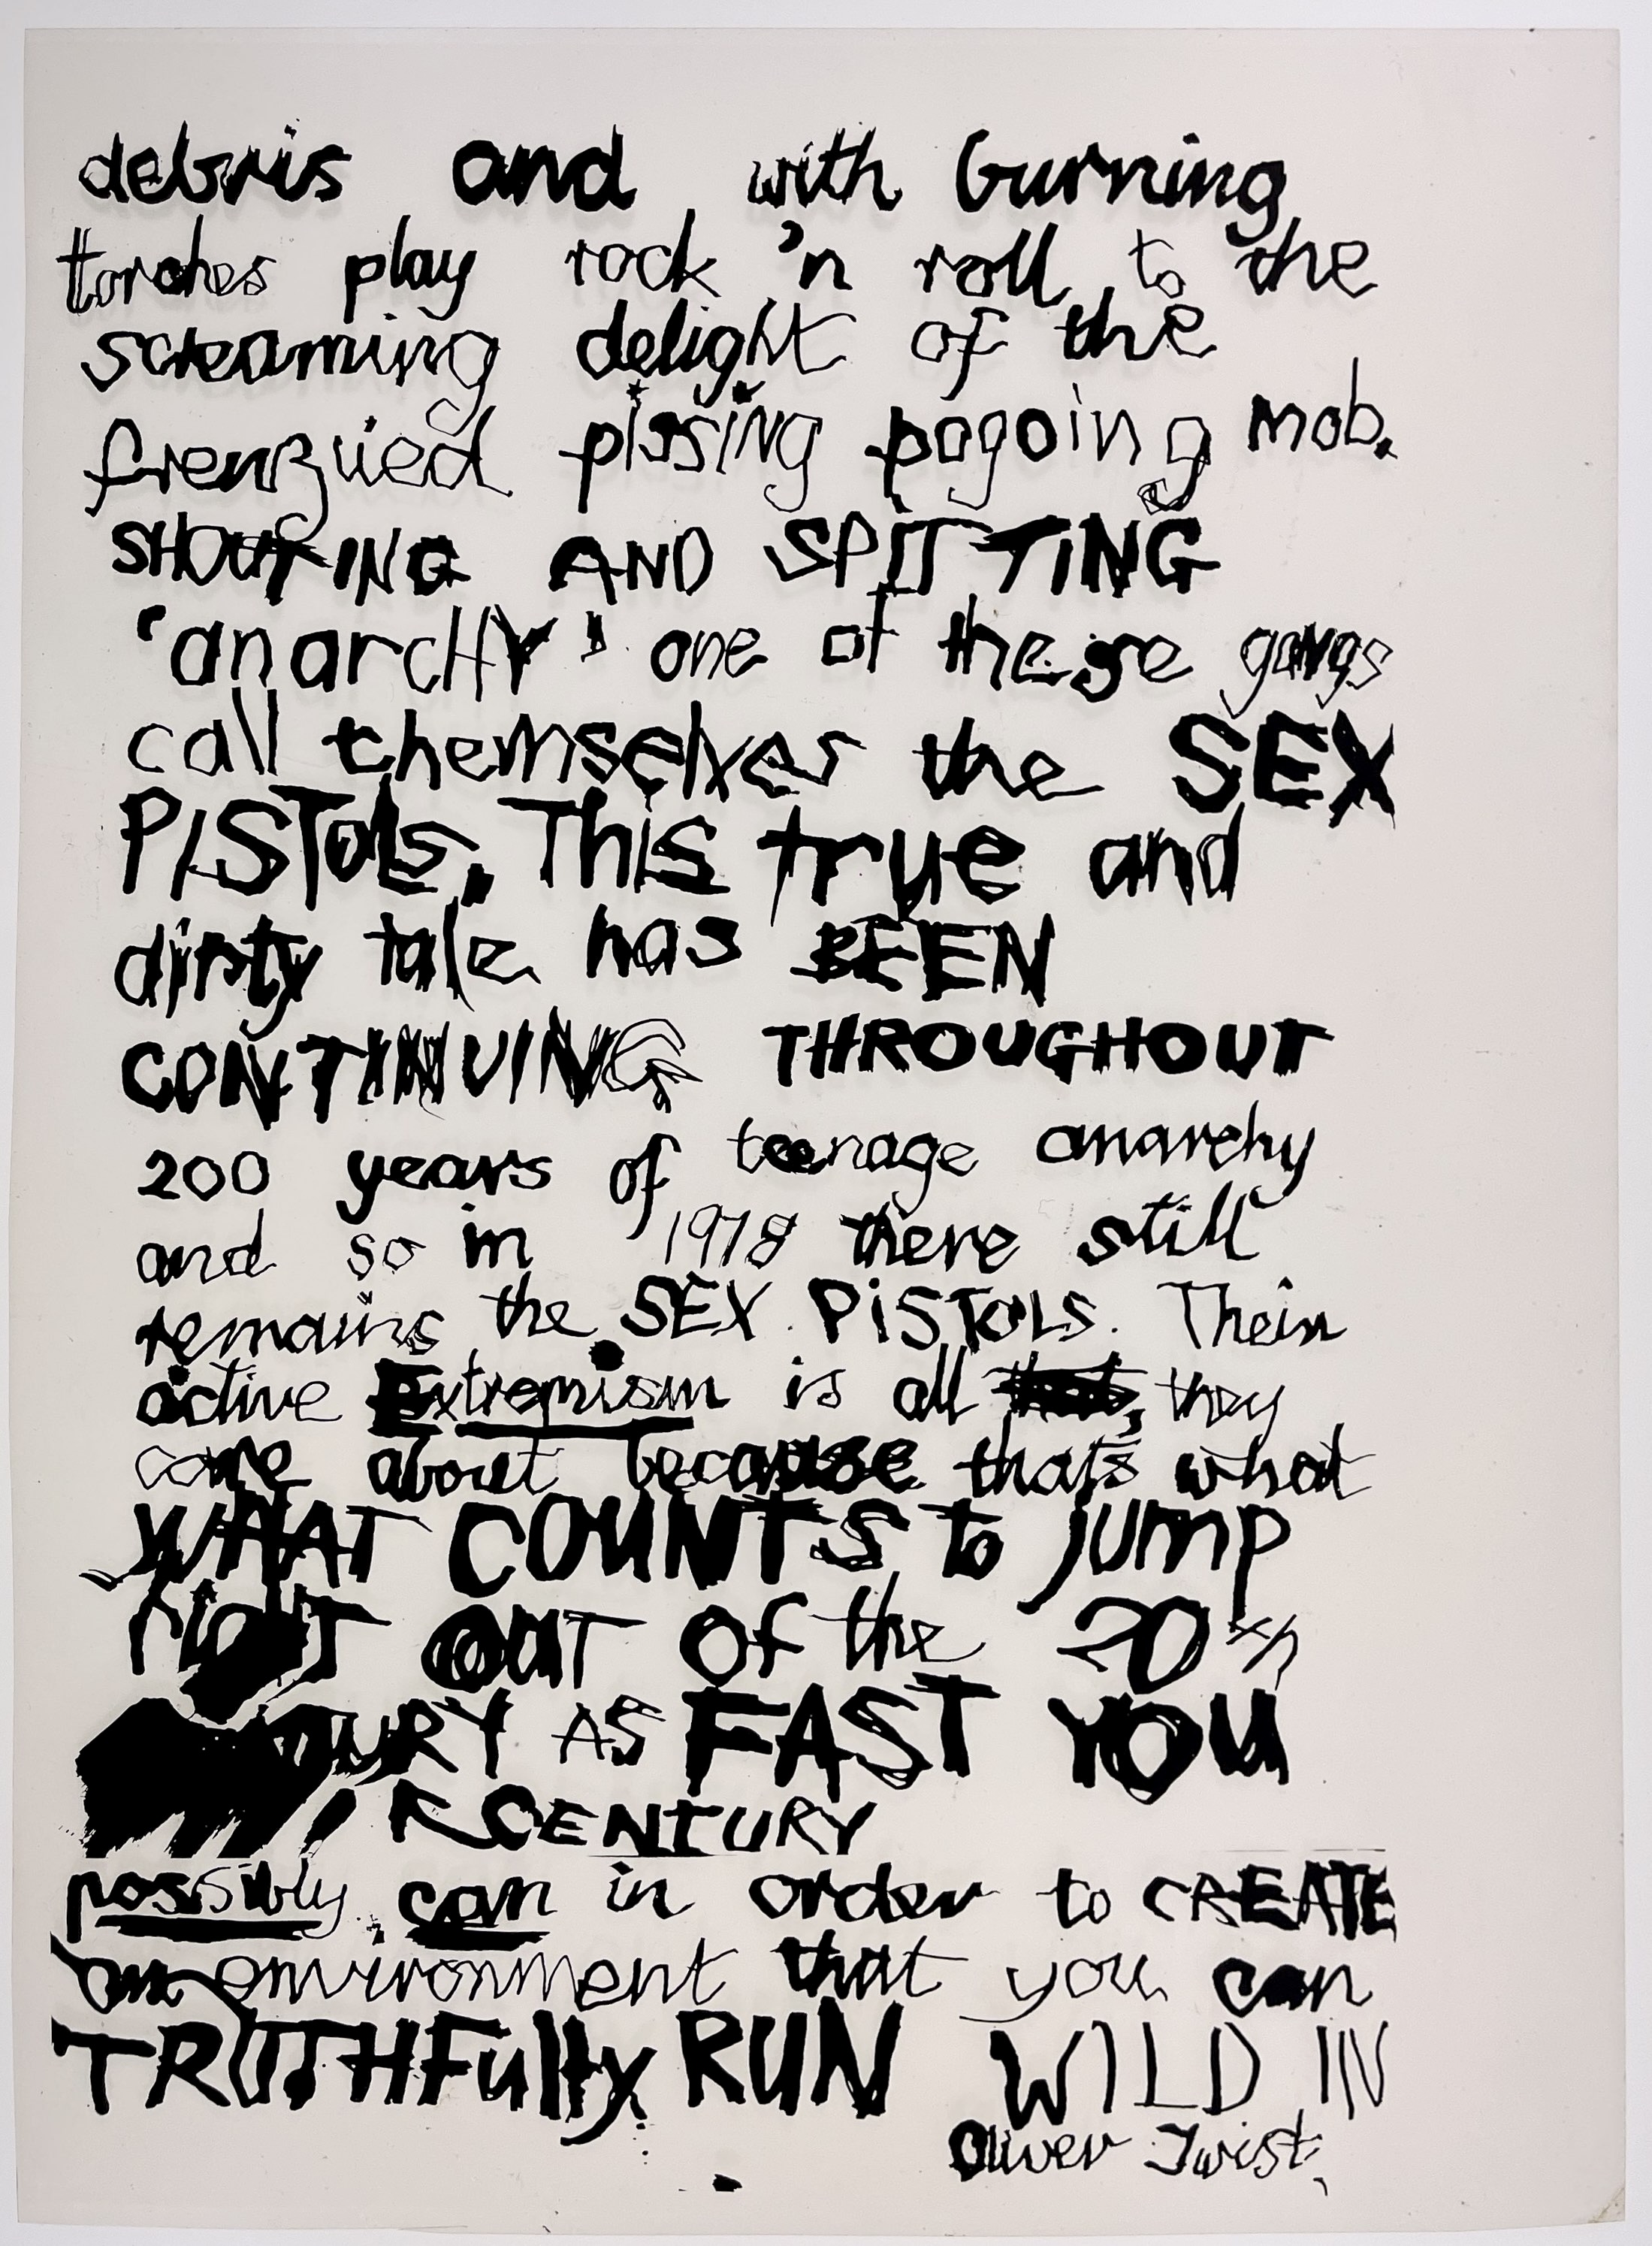 debris and with burning
torches play rock 'n roll to the
screaming delight of the
frenzied pissing pogoing mob.
SHOUTING AND SPITTING
'anarcHY' one of these gangs
call themselves the SEX
PISTOLS. This true and
dirty tale has BEEN
CONTINUING THROUGHOUT
200 years of teenage anarchy
and so in 1978 there still
remains the SEX PiSTOLS. Their
active Extremism is all they
care about because thats what
WHAT COUNTS to jump
righT OUT Of the 20th
TURY AS FAST YOU
CENTURY
possibly can in order to CREATE
an environment that you can
TRUTHFully RUN WILD IN
Oliver Twist.